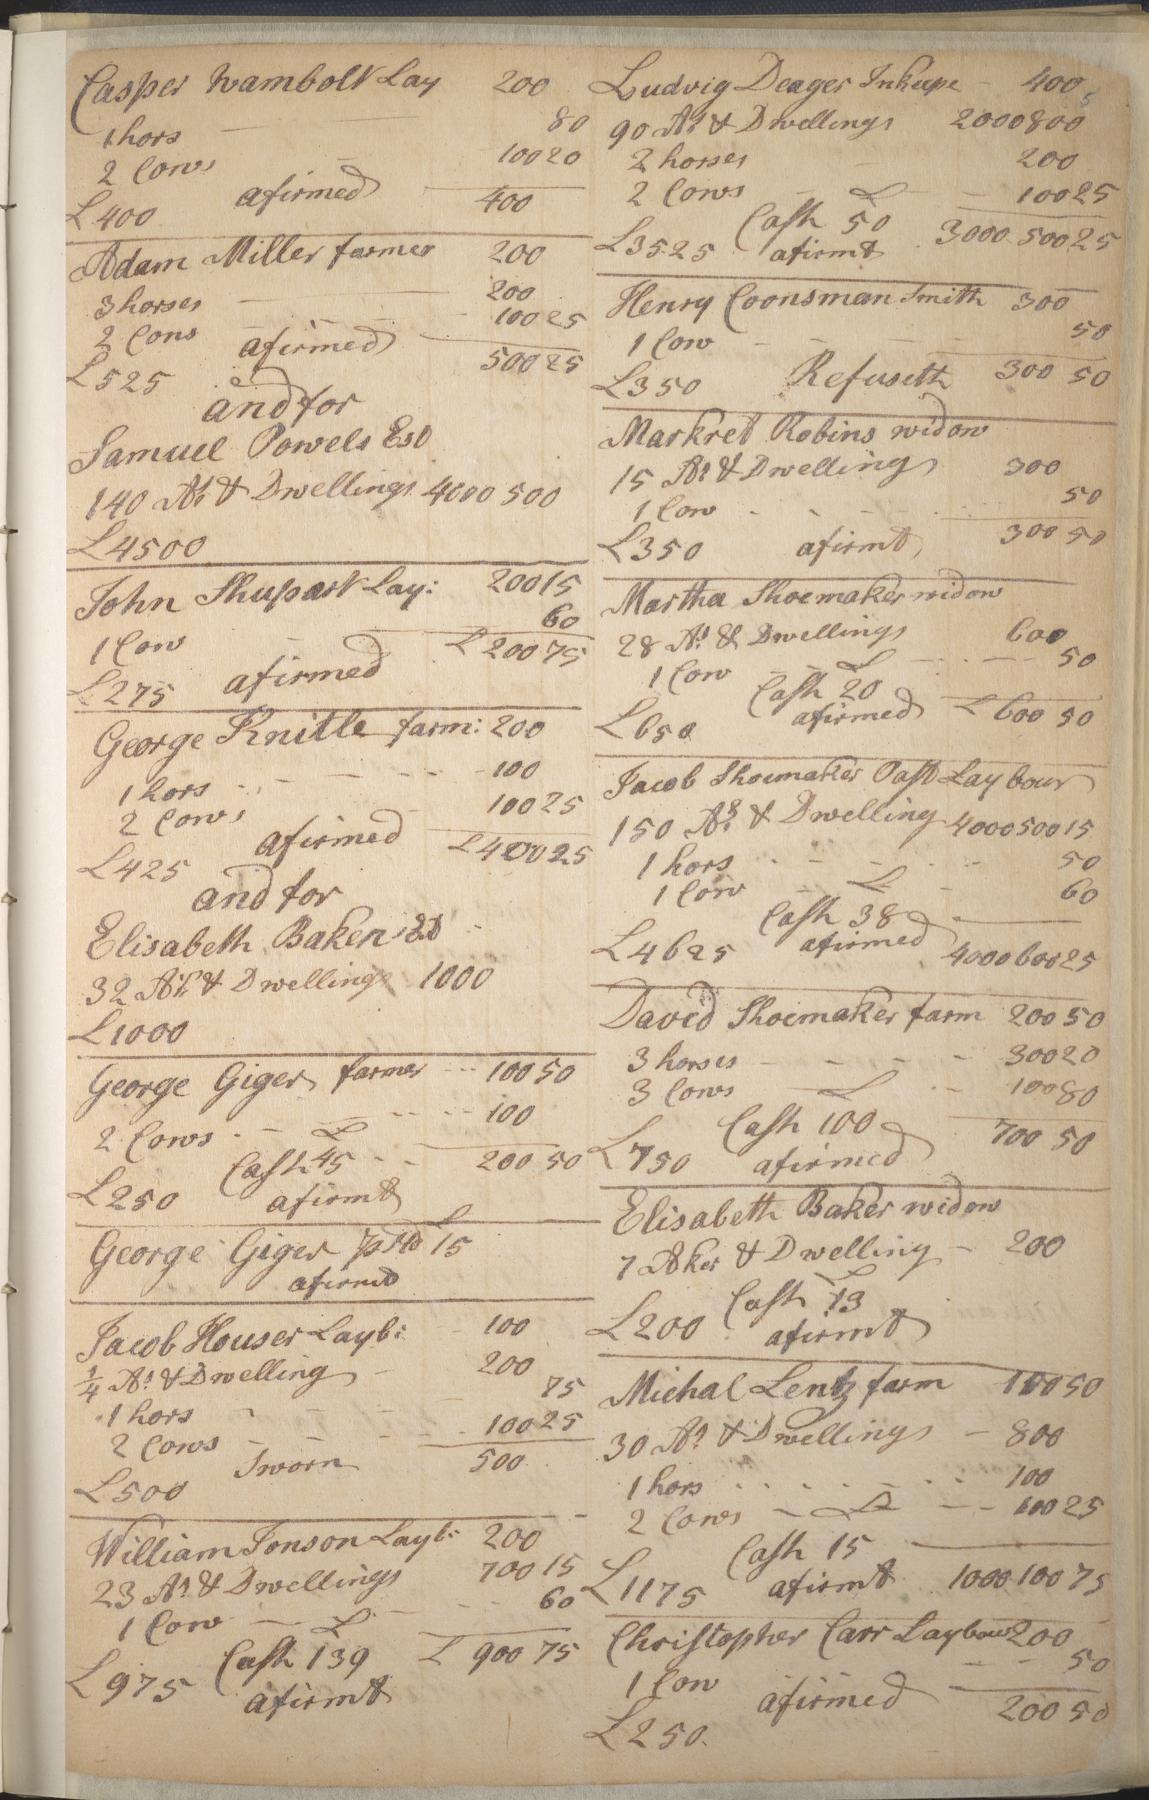 Casper Wambolt Lay 200
1 hors 80
2 Cows 100 20
L400 afirmed 400
Adam Miller farmer 200
3 horses 200
2 Cows 100 25
L525 afirmed 500 25
and for
Samuel Powels Est
140 Ars & Dwellings 4000 500
L4500
John Shupart Lay: 200 15
1 Cow 60
L275 afirmed L 200 75
George Knitle farm: 200
1 hors 100
2 Cows 100 25
L425 afirmed L400 25
and for
Elisabeth Baken Est
32 Ars & Dwellings 1000
L1000
George Giger farmer 100 50
2 Cows 100
L
Cash 45 200 50
L250 afirmt
George Giger L 15
afirmd
Jacob Houser Layb: 100
1/4 Ar & Dwelling 200
1 hors 75
2 Cows 100 25
L500 Sworn 500
William Jonson Layb: 200
23 Ars & Dwellings 700 15
1 Cow L 60
Cash 139 L 900 75
L975 afirmt
Ludvig Deager Inkeepe 400
90 Ars & Dwellings 2000 800
2 horses 200
2 Cows L 100 25
Cash 50
L3525 afirmt 3000 500 25
Henry Coonsman Smith 300
1 Cow 50
L350 Refuseth 300 50
Markret Robins widow
15 Ars & Dwelling 300
1 Cow 50
L350 afirmt 300 50
Martha Shoemaker widow
28 Ars & Dwellings 600
1 Cow L 50
Cash 20
L650 afirmed L 600 50
Jacob Shoemaker Past Laybour
150 Ars & Dwelling 4000 500 15
1 hors 50
1 Cow L 60
Cash 38
L4625 afirmed 4000 600 25
David Shoemaker farm 200 50
3 horses 300 20
3 Cows L 100 80
Cash 100
L750 afirmed 700 50
Elisabeth Baker widow
7 Aker & Dwelling 200
L
Cash 13
L200 afirmt
Michal Lentz farm 100 50
30 Ars & Dwellings 800
1 hors 100
2 Cows L 100 25
Cash 15
L1175 afirmt 1000 100 75
Christopher Carr Laybour 200
1 Cow 50
L250 afirmed 200 50